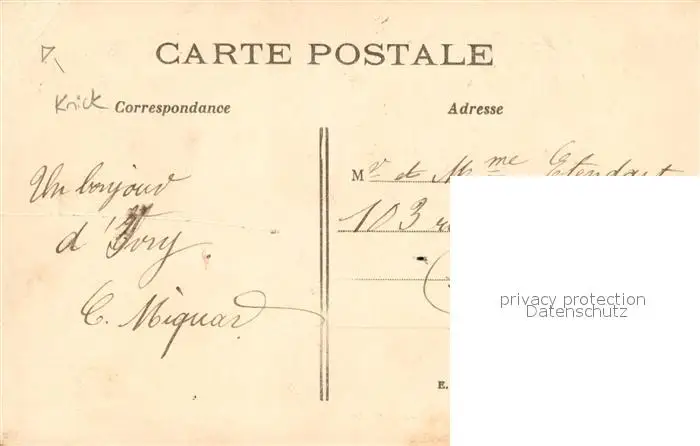 CARTE POSTALE
Knick
Correspondance
Adresse
Un bonjour
d'Ivry.
C. Miquard
Mr et Mme Etendart
103
privacy protection
Datenschutz
E.